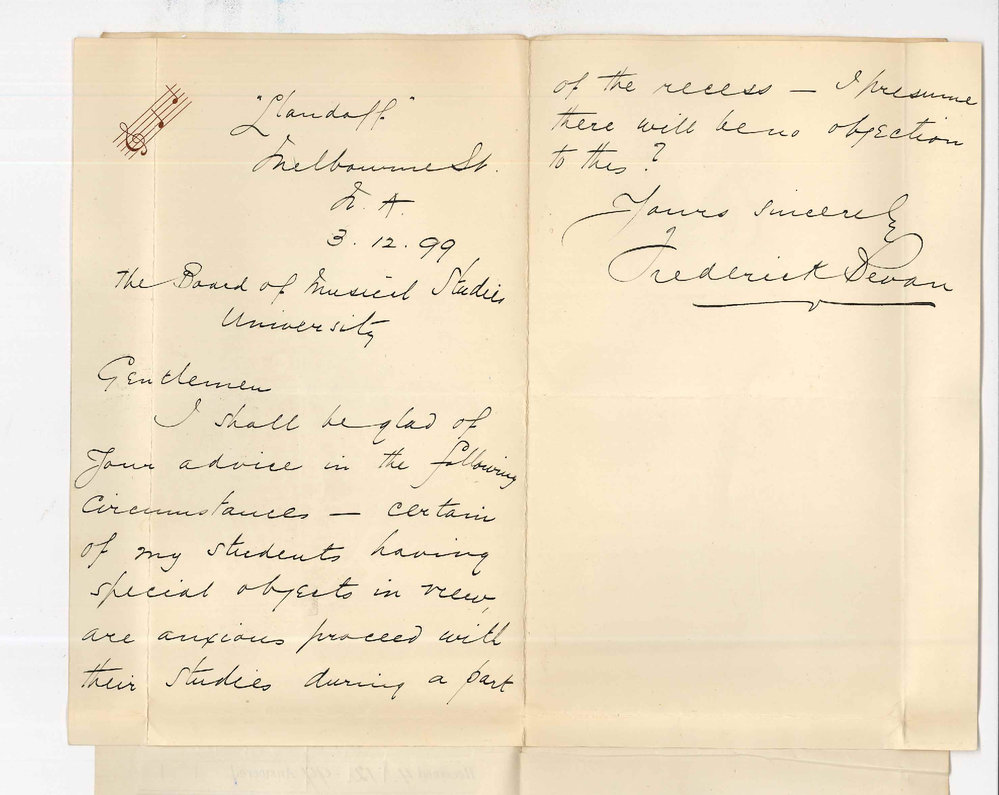 "Llandaff"
Melbourne St.
N. A.
3. 12. 99
The Board of Musical Studies
University
Gentlemen
I shall be glad of
your advice in the following
circumstances — certain
of my students having
special objects in view,
are anxious proceed with
their studies during a part
of the recess — I presume
there will be no objection
to this?
Yours sincerely
Frederick Bevan